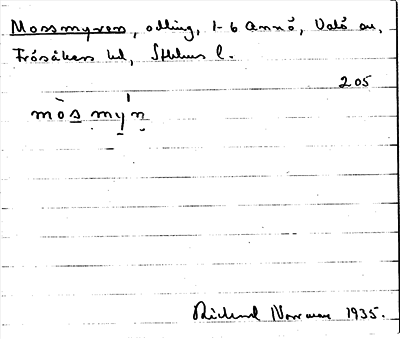 Mossmyren, odling, 1-6 Annö, Valö sn,
Frösåkers hd, Sthlms l.
205
mòs mỳ'n
Richard Norrman 1935.